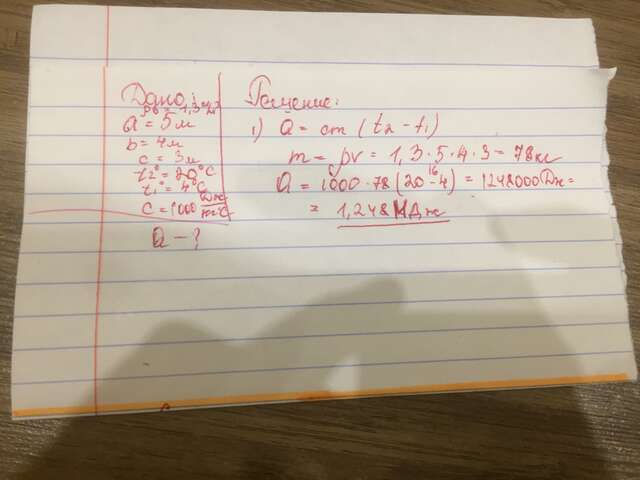 Дано:
ρв = 1,3 кг/м³
a = 5м
b = 4м
c = 3м
t2° = 20°C
t1° = 4°C
c = 1000 Дж/кг°C
Q - ?
Решение:
1) Q = cm (t2 - t1)
m = ρv = 1,3 · 5 · 4 · 3 = 78кг
16
Q = 1000 · 78 (20 - 4) = 1248000Дж =
= 1,248МДж